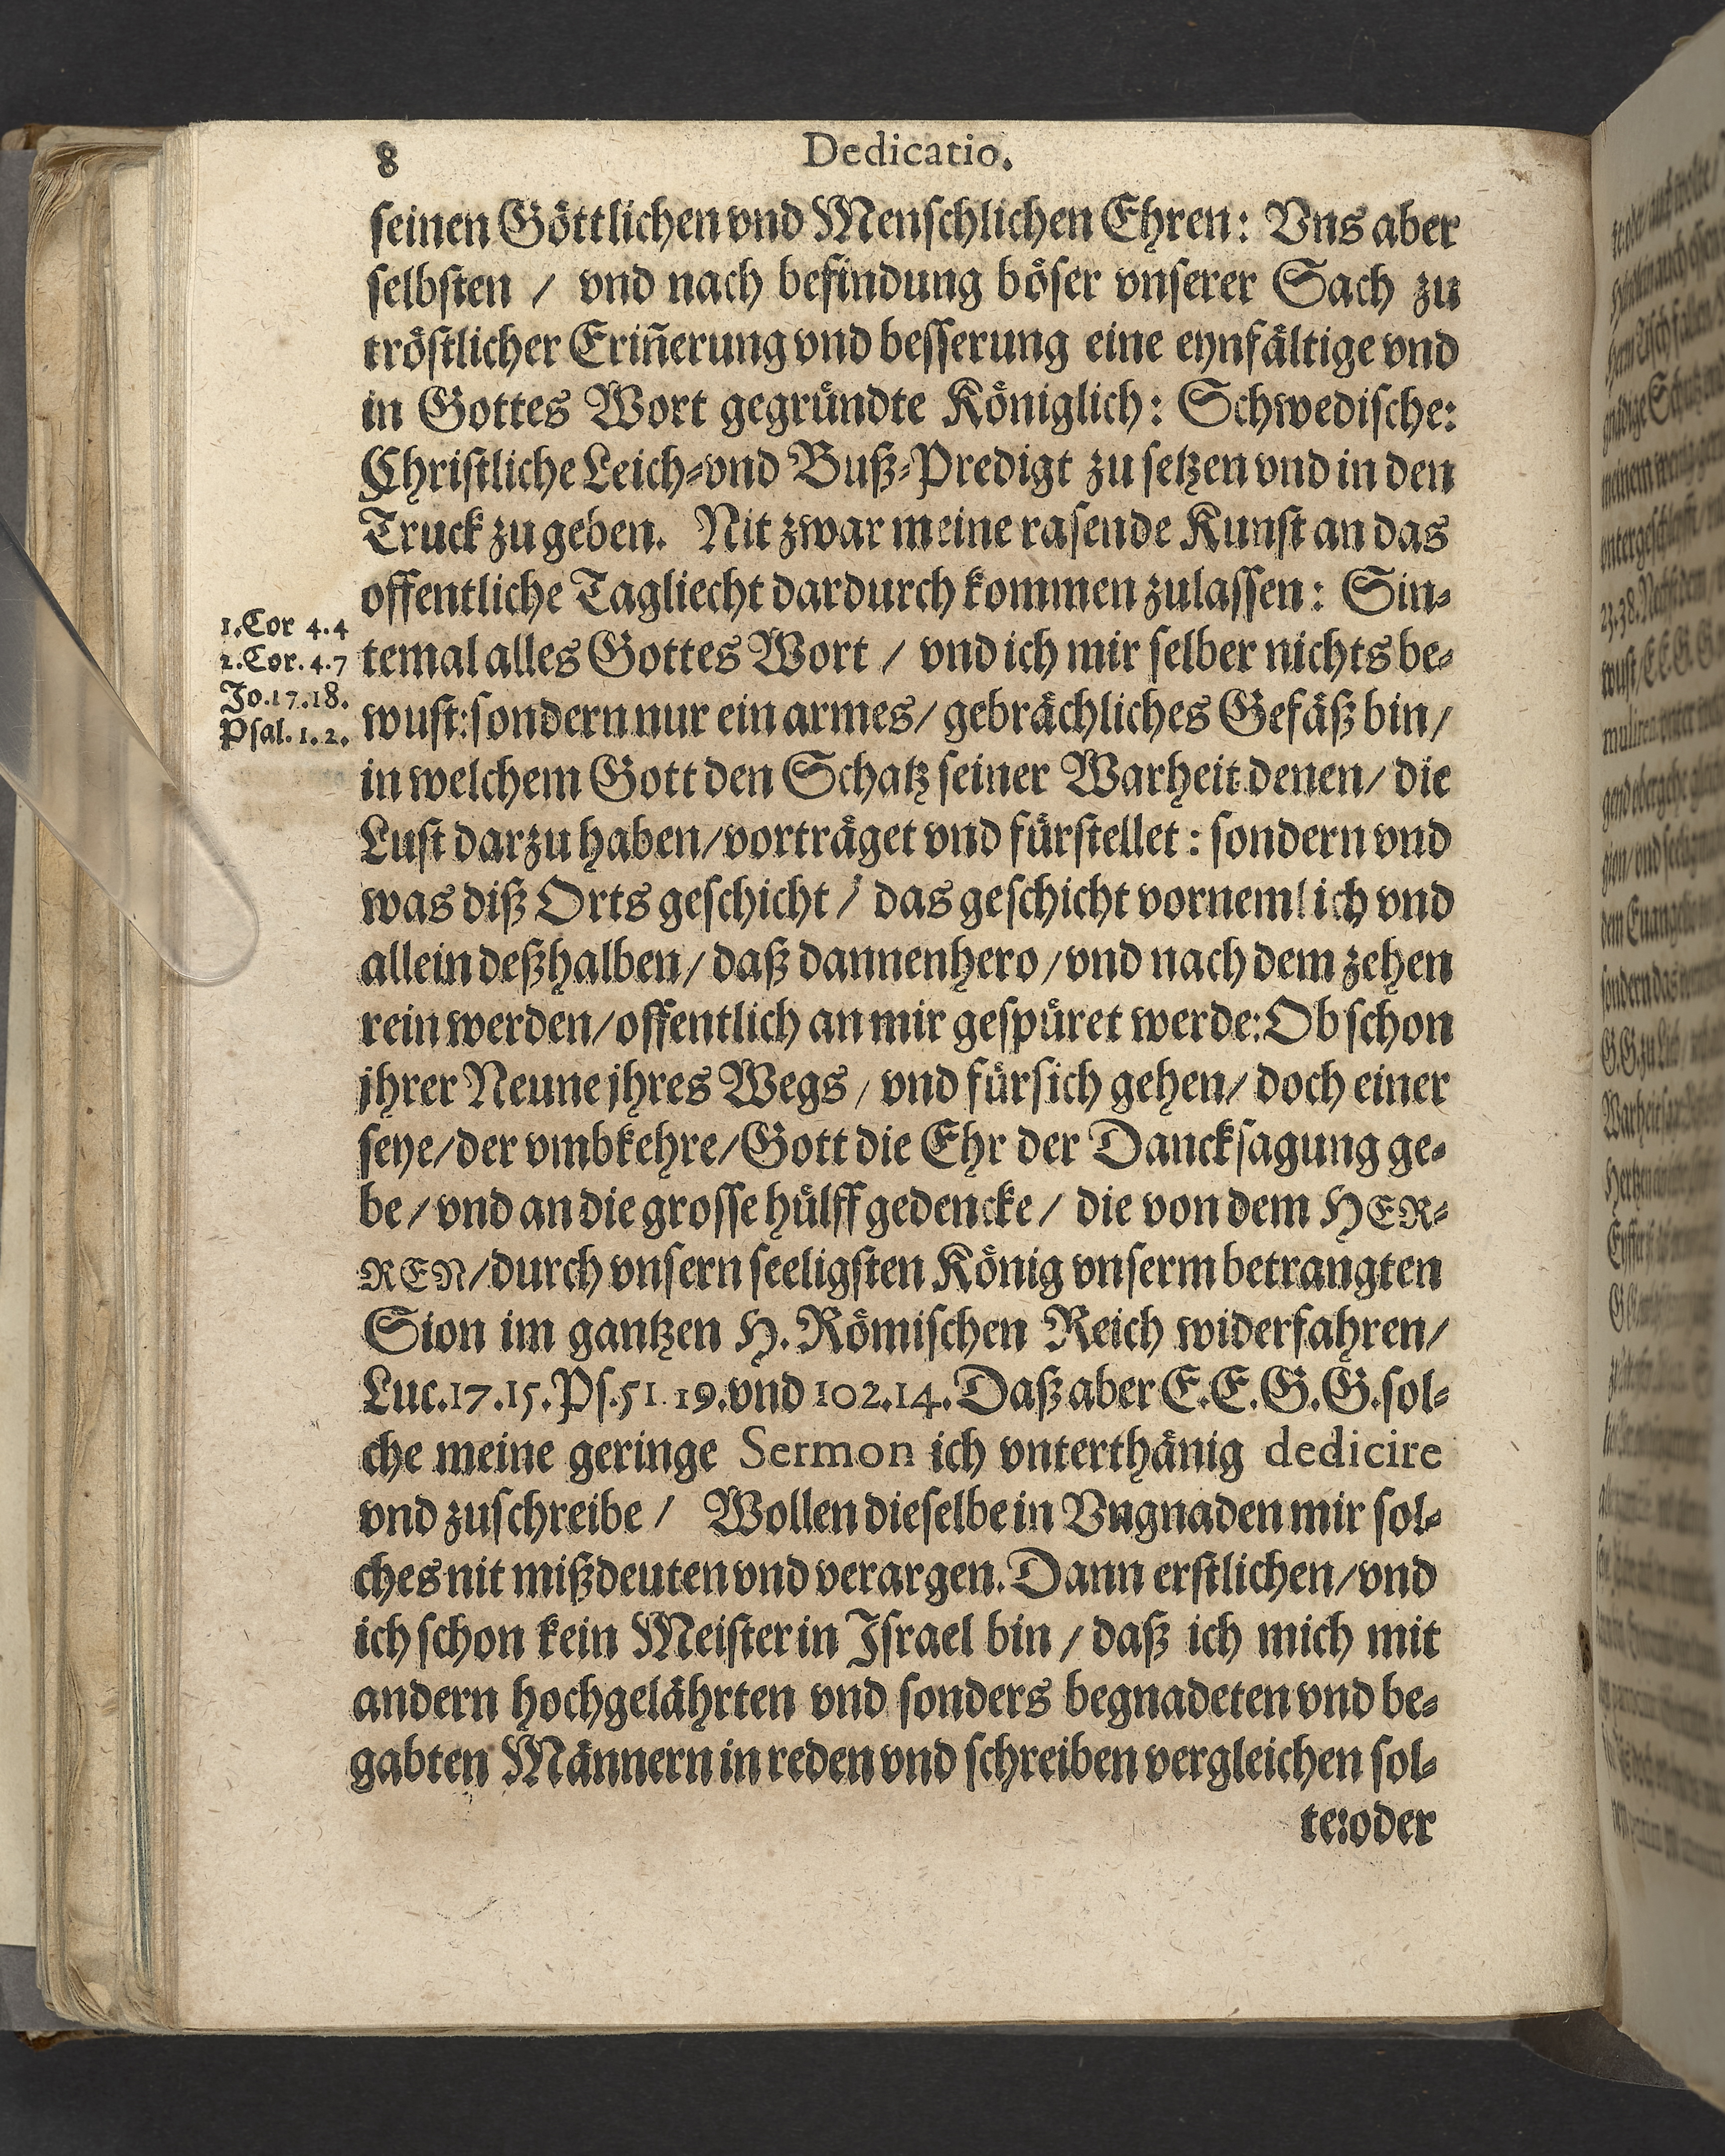 8 Dedicatio.
seinen Göttlichen vnd Menschlichen Ehren: Vns aber
selbsten / vnd nach befindung böser vnserer Sach zu
tröstlicher Eriñerung vnd besserung eine eynfältige vnd
in Gottes Wort gegründte Königlich: Schwedische:
Christliche Leich-vnd Buß-Predigt zu setzen vnd in den
Truck zu geben. Nit zwar meine rasende Kunst an das
offentliche Tagliecht dardurch kommen zulassen: Sin-
temal alles Gottes Wort / vnd ich mir selber nichts be-
wust: sondern nur ein armes / gebrächliches Gefäß bin /
in welchem Gott den Schatz seiner Warheit denen / die
Lust darzu haben / vorträget vnd fürstellet: sondern vnd
was diß Orts geschicht / das geschicht vornemlich vnd
allein deßhalben / daß dannenhero / vnd nach dem zehen
rein werden / offentlich an mir gespüret werde: Ob schon
jhrer Neune jhres Wegs / vnd fürsich gehen / doch einer
seye / der vmbkehre / Gott die Ehr der Dancksagung ge-
be / vnd an die grosse hülff gedencke / die von dem HER-
REN / durch vnsern seeligsten König vnserm betrangten
Sion im gantzen H. Römischen Reich widerfahren /
Luc. 17. 15. Ps. 51. 19. vnd 102. 14. Daß aber E. E. G. G. sol-
che meine geringe Sermon ich vnterthänig dedicire
vnd zuschreibe / Wollen dieselbe in Vngnaden mir sol-
ches nit mißdeuten vnd verargen. Dann erstlichen / vnd
ich schon kein Meister in Israel bin / daß ich mich mit
andern hochgelährten vnd sonders begnadeten vnd be-
gabten Männern in reden vnd schreiben vergleichen sol-
te: oder
1. Cor 4. 4
2. Cor. 4. 7
Jo. 17. 18.
Psal. 1. 2.